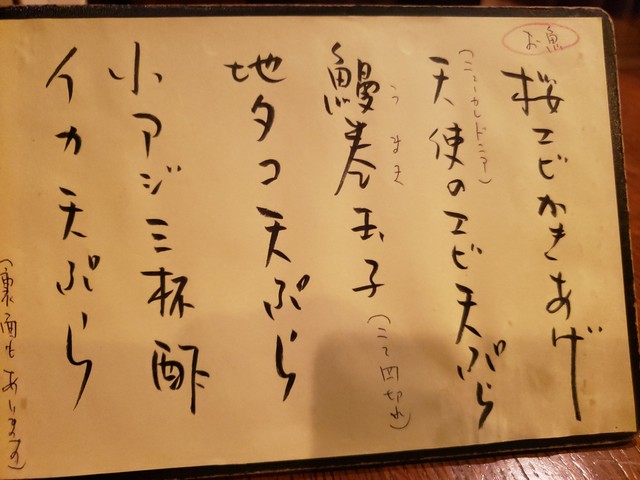 お魚
桜エビかきあげ
(ニューカレドニア)
天使のエビ天ぷら
鰻巻玉子
うまき
地タコ天ぷら
小アジ三杯酢
イカ天ぷら
(裏面もあります)